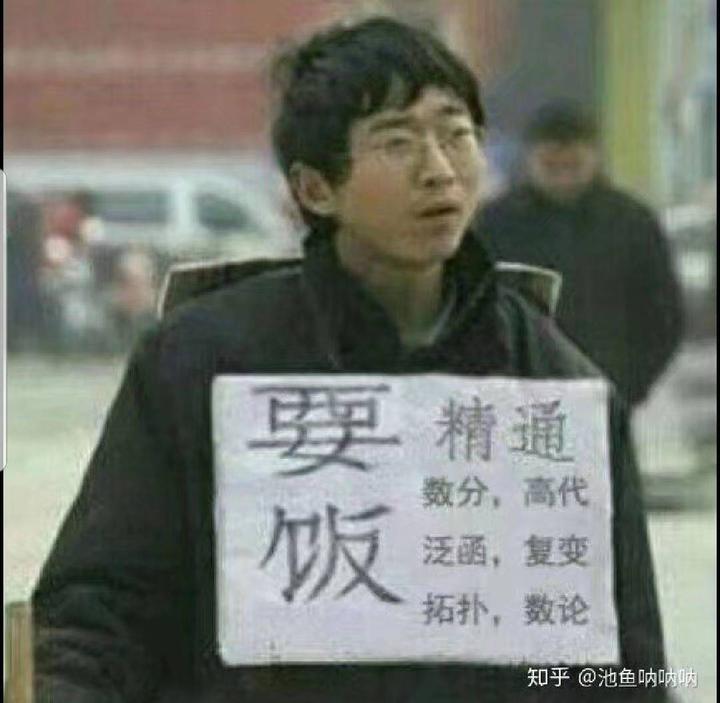 要饭
精通
数分，高代
泛函，复变
拓扑，数论
知乎 @池鱼呐呐呐